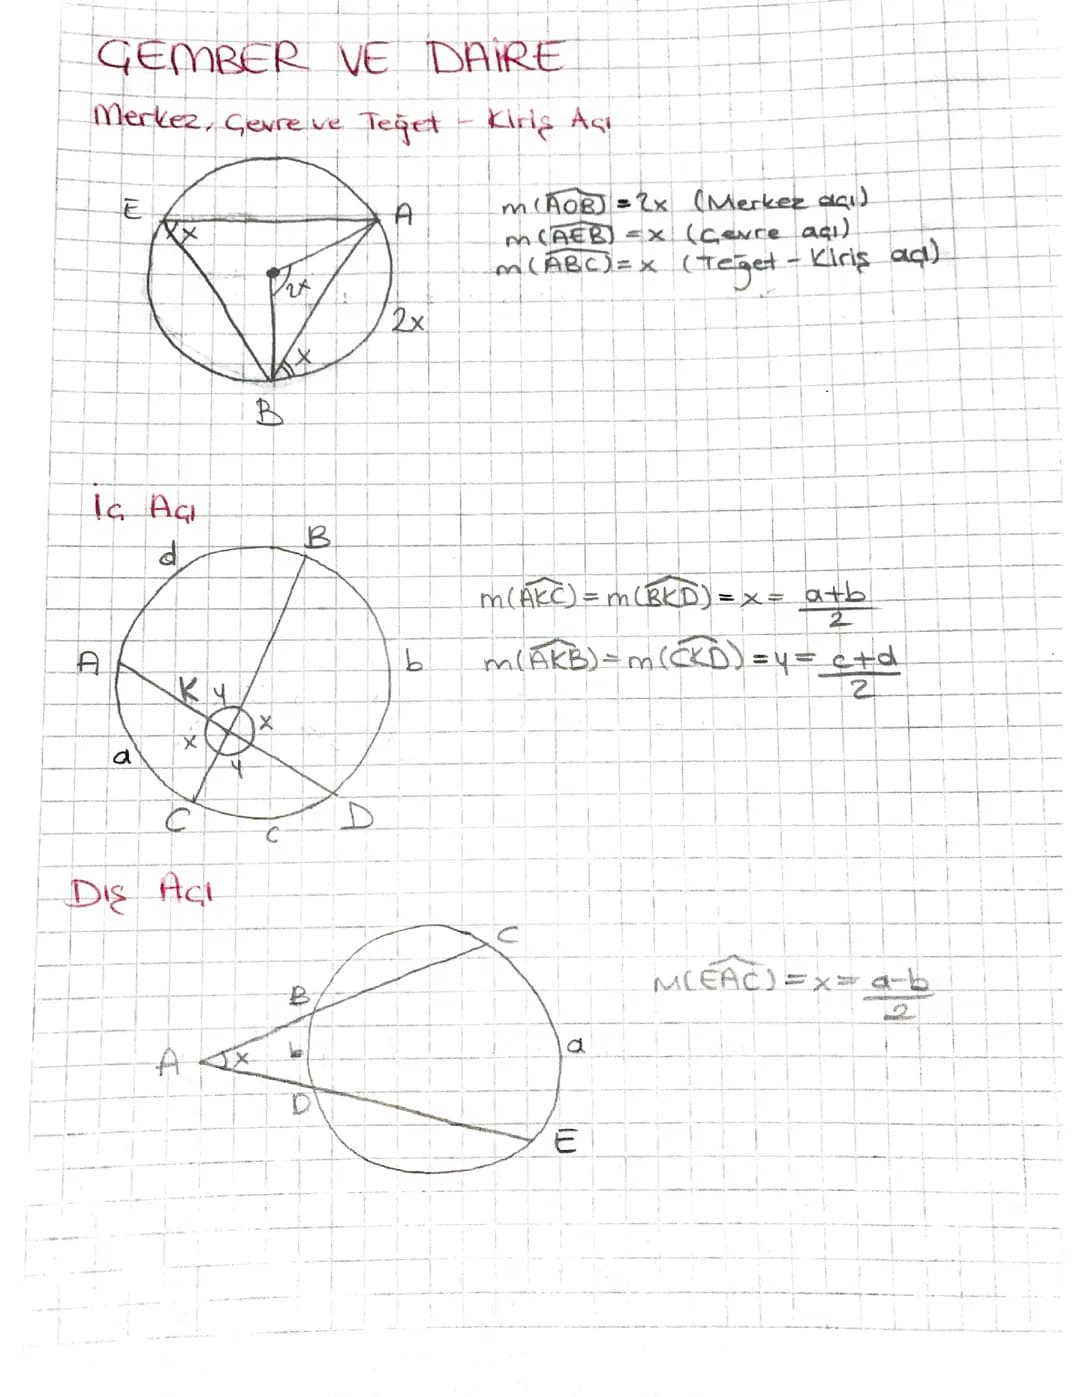 ÇEMBER VE DAİRE
Merkez, Çevre ve Teğet - Kiriş Açı
E
A
x
2x
2x
x
B
m(AOB) = 2x (Merkez açı)
m(AEB) = x (Çevre açı)
m(ABC) = x (Teğet - Kiriş açı)
İç Açı
d
B
A
b
K y
x
x
a
y
C
D
c
m(AKC) = m(BKD) = x = a+b
2
m(AKB) = m(CKD) = y = c+d
2
Dış Açı
C
B
A
x
b
a
D
E
m(EAC) = x = a-b
2